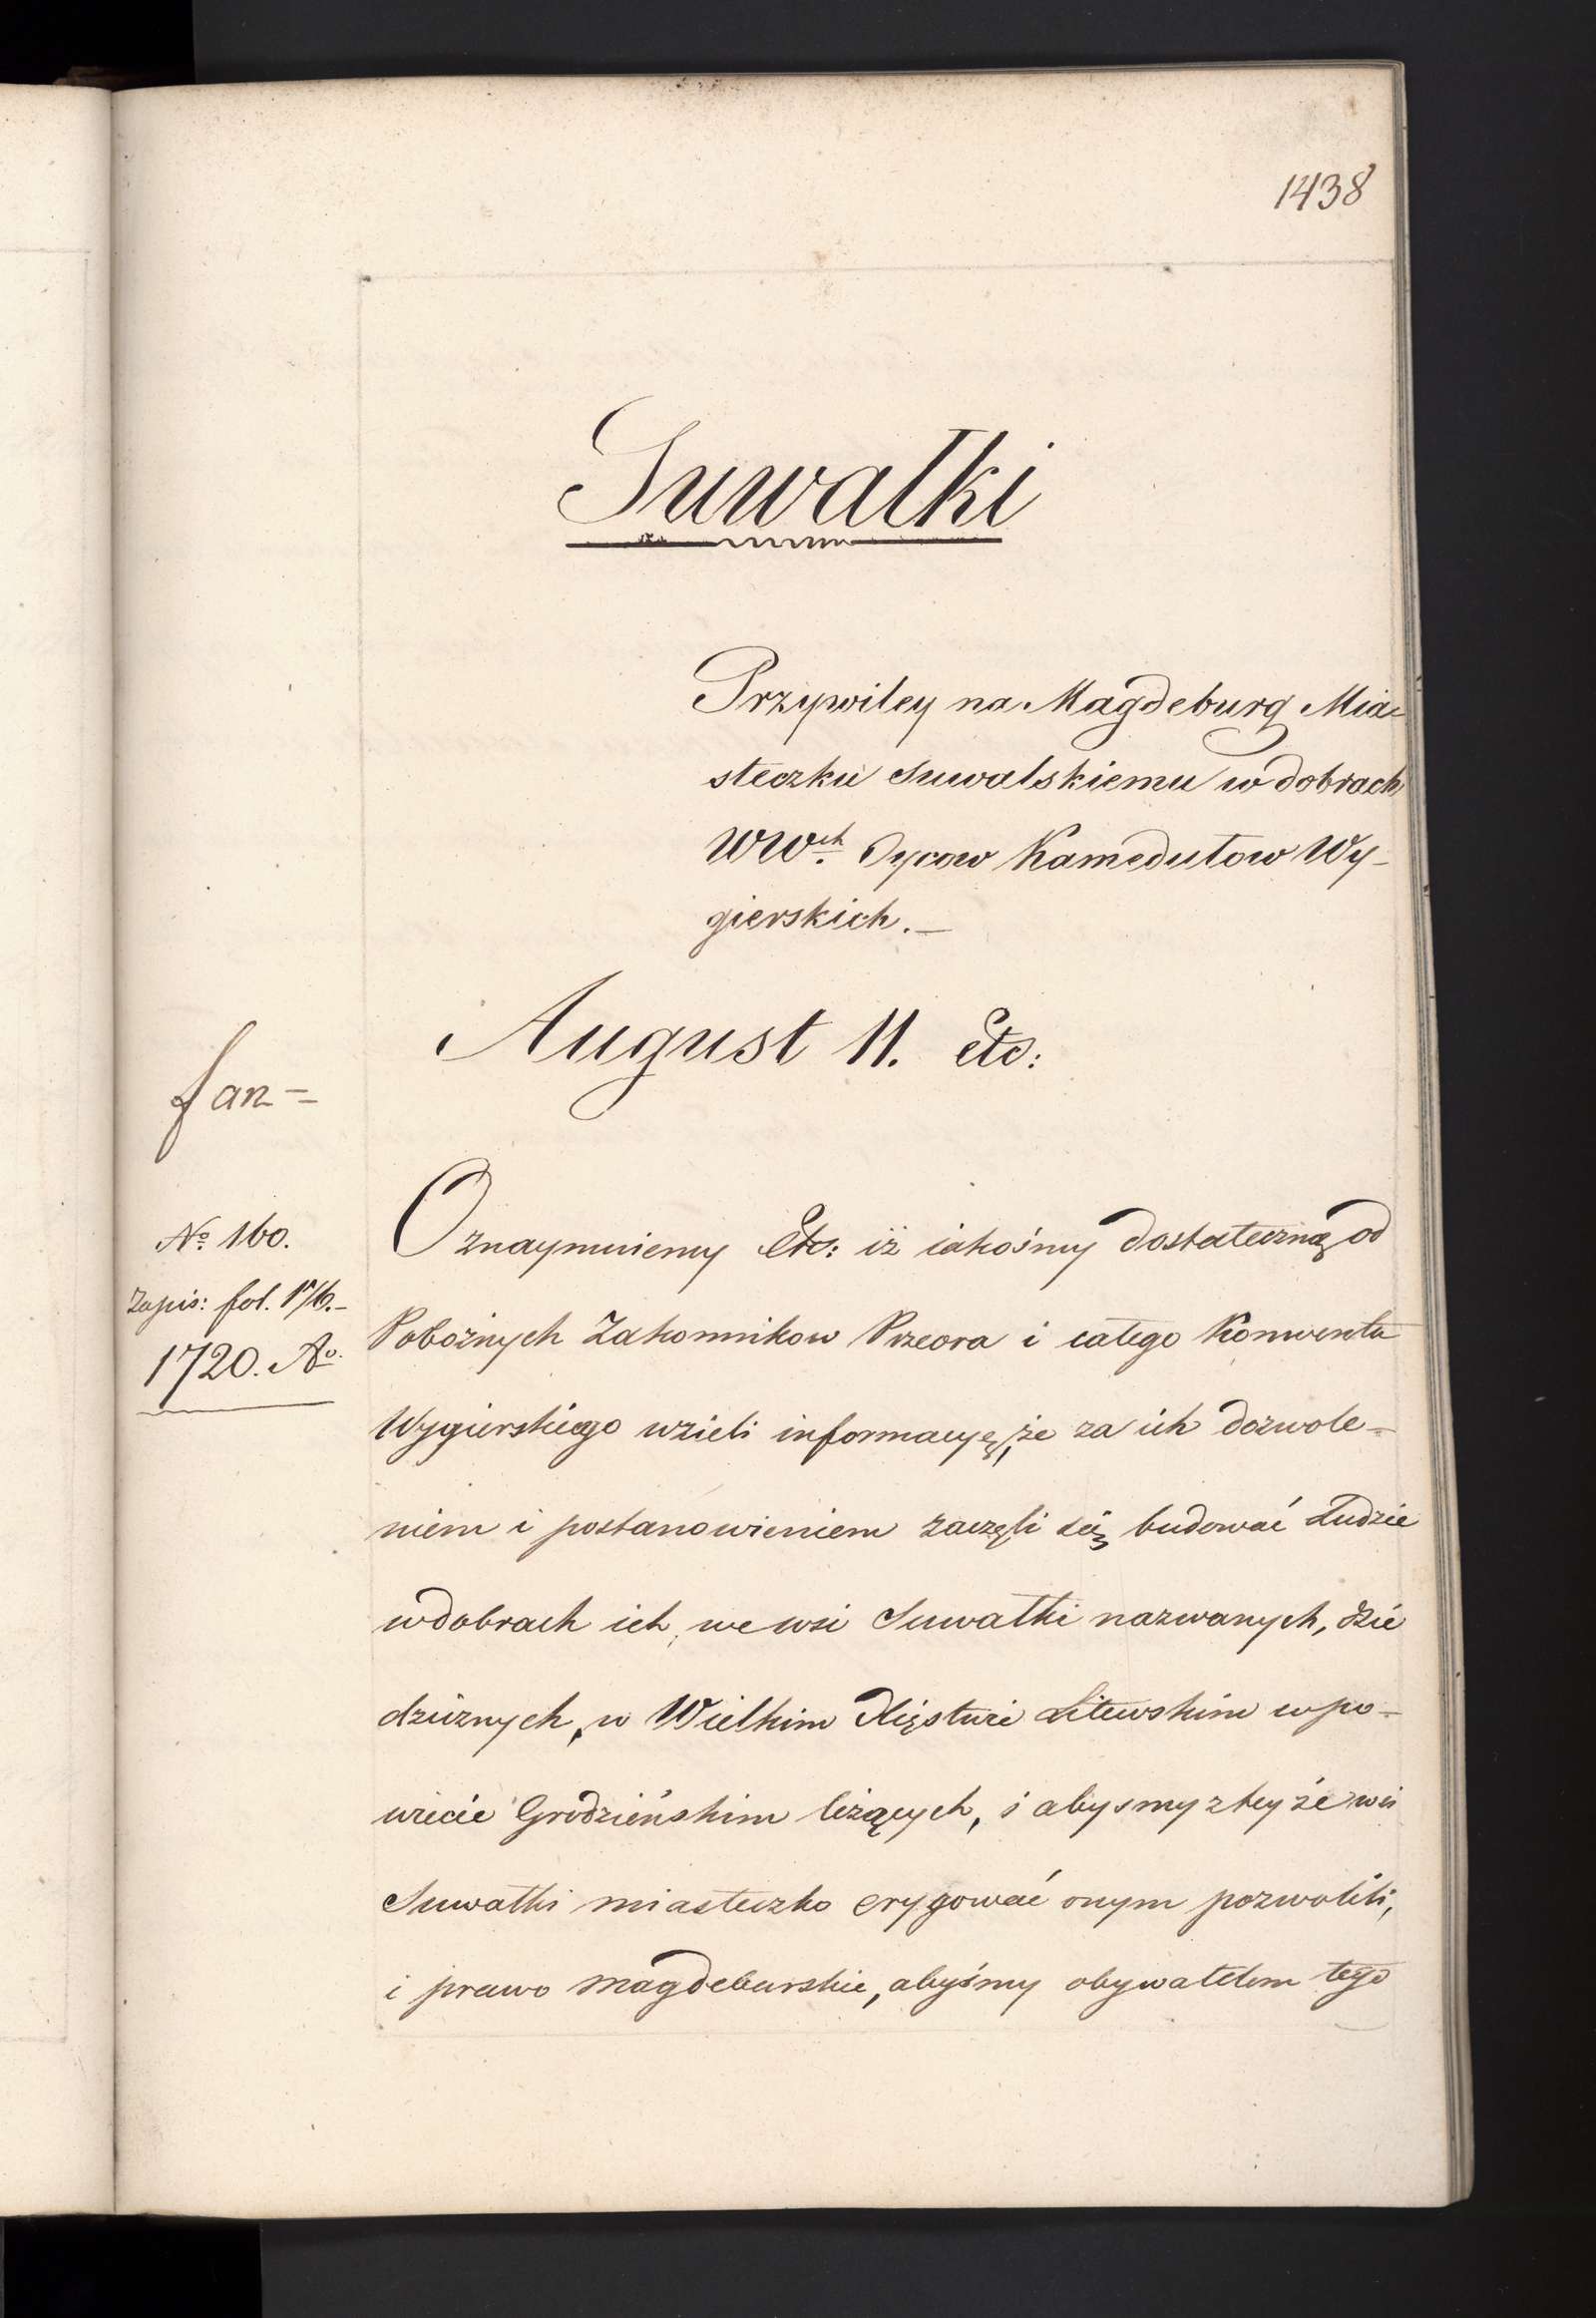 1438
Suwałki
Przywiley na Magdeburg Mia-
steczku Suwalskiemu w dobrach
WWch. Oycow Kamedułow Wy-
gierskich. —
August II. etc:
fan =
No. 160.
Zapis: fol. 176. —
1720. Ao.
Oznaymuiemy Etc: iż iakośmy dostateczną od
Pobożnych Zakonnikow Przeora i całego Konwentu
Wygierskiego wzieli informacyę, że za ich dozwole-
niem i postanowieniem zaczęli się budować Ludzie
w dobrach ich, we wsi Suwałki nazwanych, dzie
dzicznych, w Wielkim Xięstwie Litewskim w po-
wiecie Grodzieńskim leżących, i abysmy z teyże wsi
Suwałki miasteczko erygować onym pozwolili,
i prawo magdeburskie, abyśmy obywatelom tego